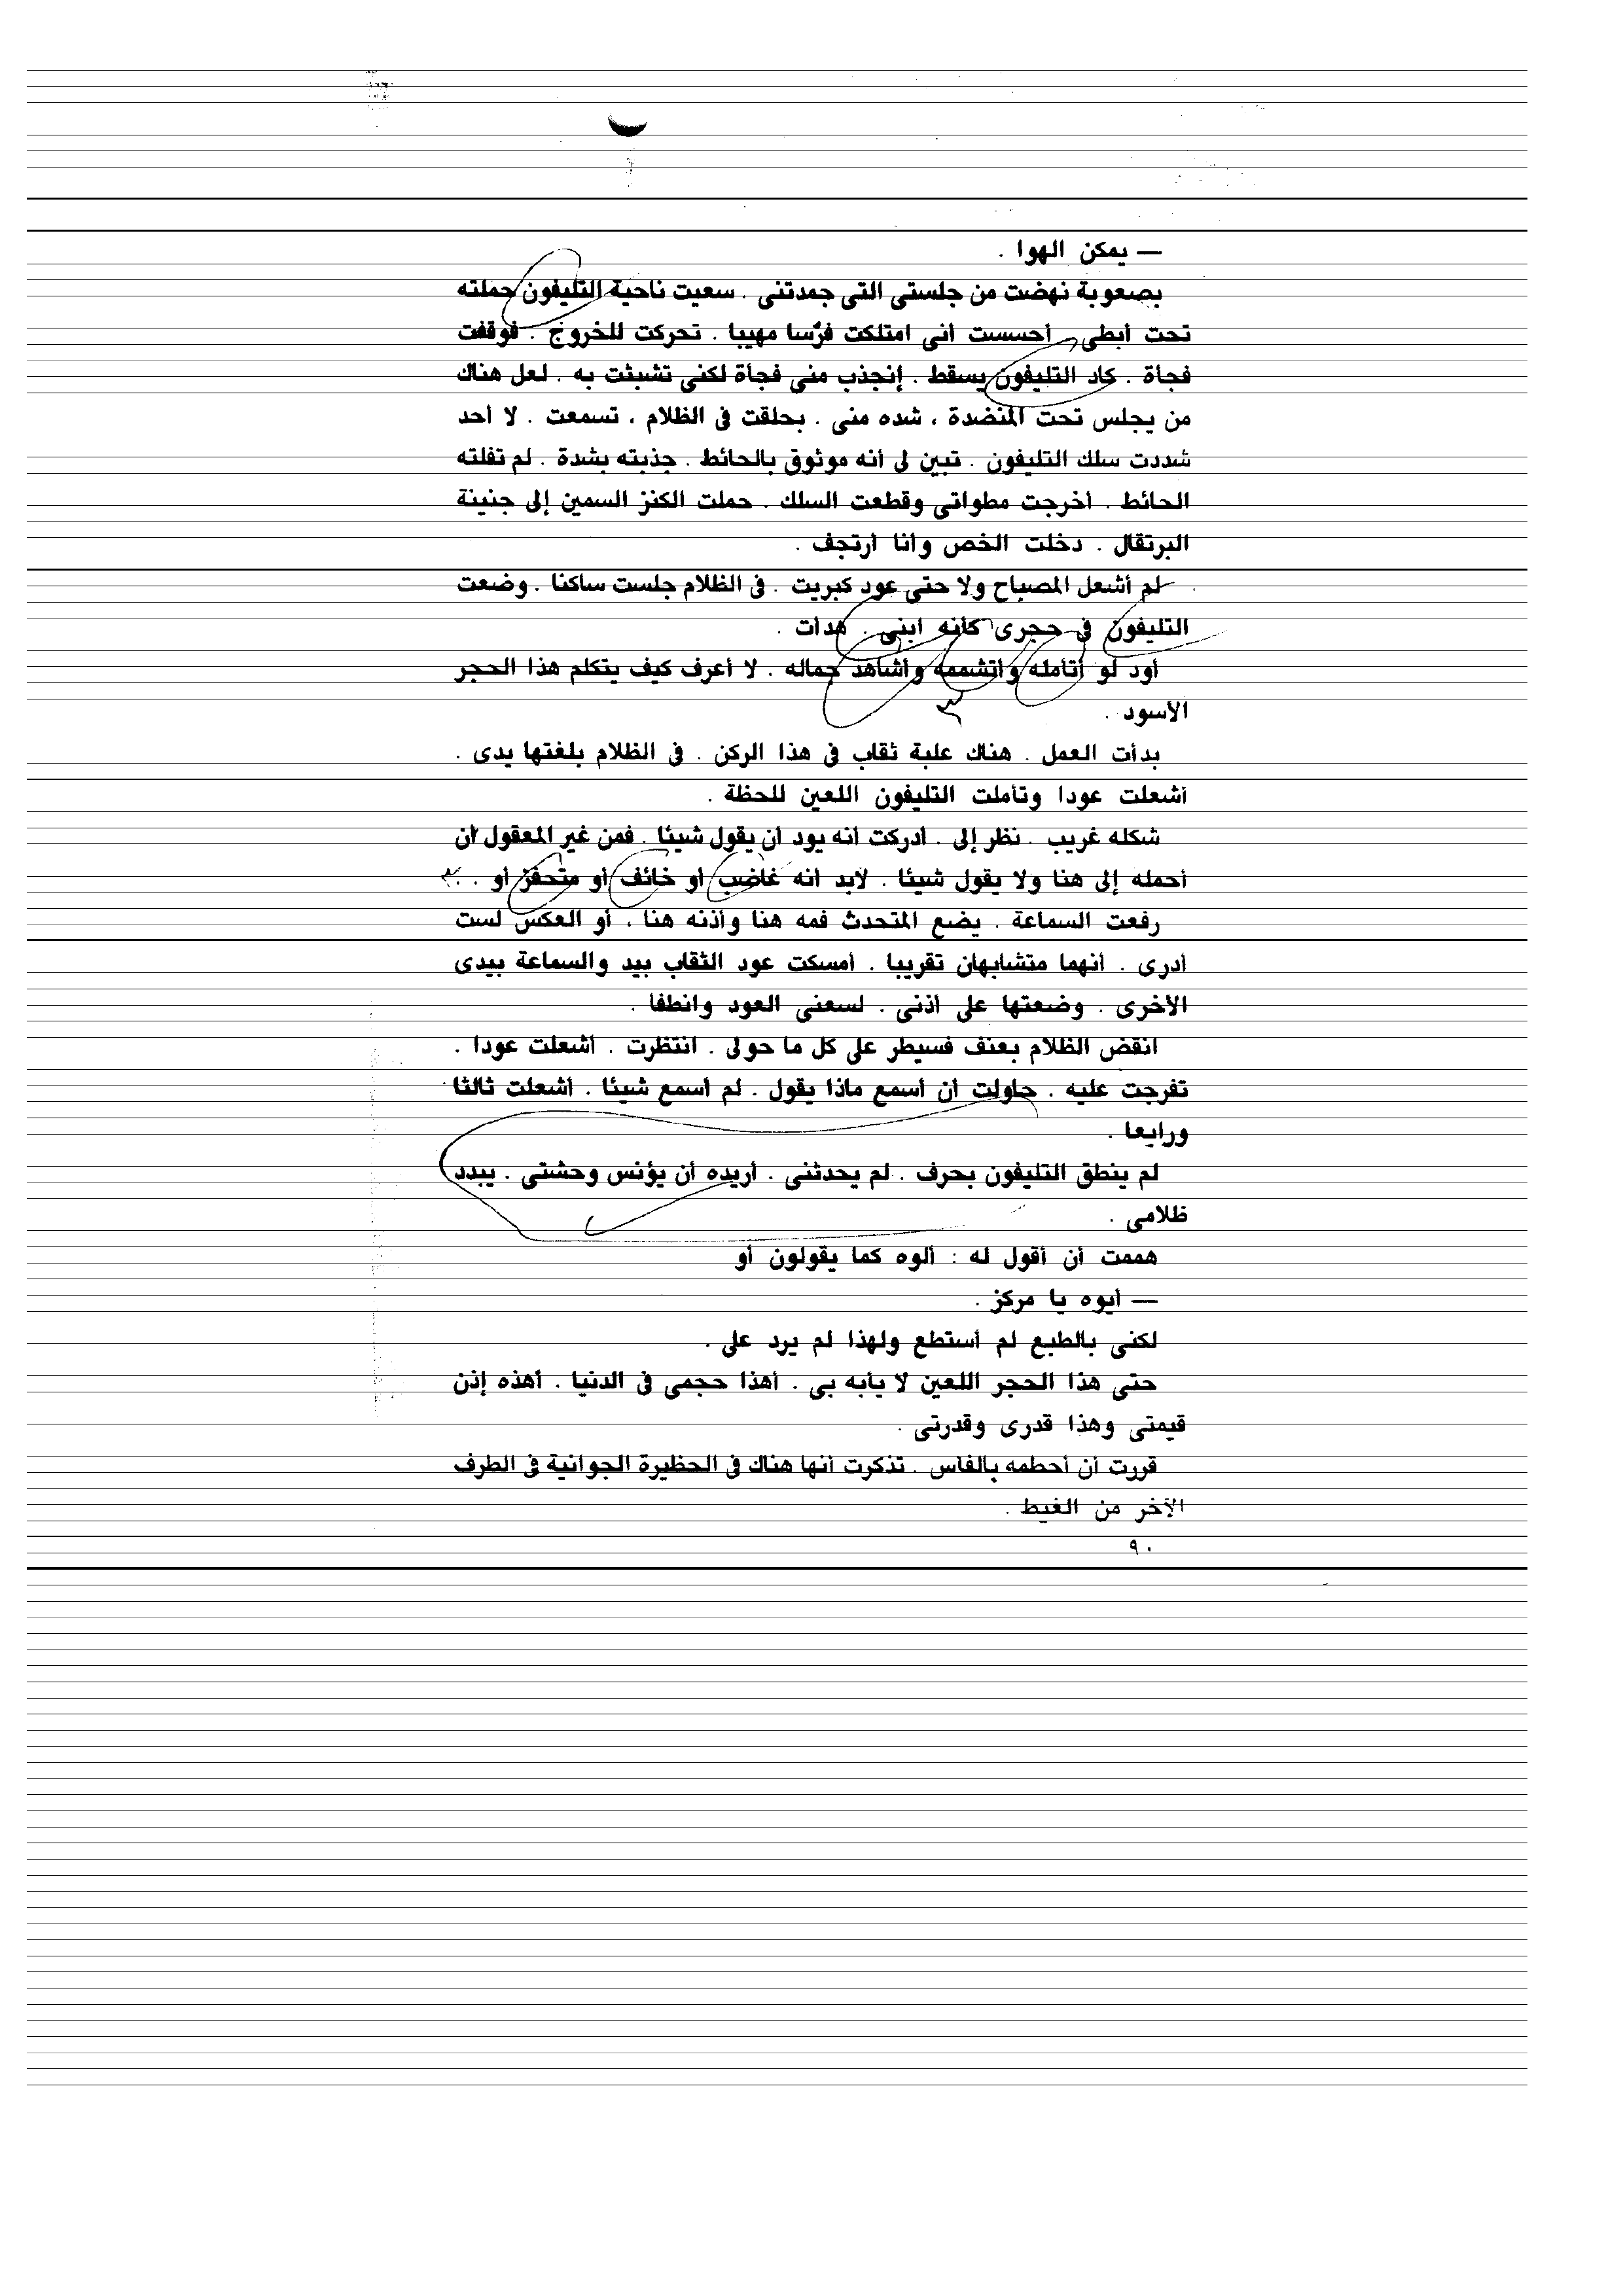 — يمكن الهوا .
بصعوبة نهضت من جلستى التى جمدتنى . سعيت ناحية التليفون حملته
تحت أبطى أحسست أنى امتلكت فرسا مهيبا . تحركت للخروج . فوقفت
فجأة . كاد التليفون يسقط . إنجذب منى فجأة لكنى تشبثت به . لعل هناك
من يجلس تحت المنضدة ، شده منى . بحلقت فى الظلام ، تسمعت . لا أحد
شددت سلك التليفون . تبين لى أنه موثوق بالحائط . جذبته بشدة . لم تفلته
الحائط . أخرجت مطواتى وقطعت السلك . حملت الكنز السمين إلى جنينة
البرتقال . دخلت الخص وأنا أرتجف .
لم أشعل المصباح ولا حتى عود كبريت . فى الظلام جلست ساكنا . وضعت
التليفون فى حجرى كأنه ابنى . هدأت .
أود لو أتأمله وأتشممه وأشاهد جماله . لا أعرف كيف يتكلم هذا الحجر
الأسود .
بدأت العمل . هناك علبة ثقاب فى هذا الركن . فى الظلام بلغتها يدى .
أشعلت عودا وتأملت التليفون اللعين للحظة .
شكله غريب . نظر إلى . أدركت أنه يود أن يقول شيئا . فمن غير المعقول أن
أحمله إلى هنا ولا يقول شيئا . لابد أنه غاضب أو خائف أو متحفز أو . .
رفعت السماعة . يضع المتحدث فمه هنا وأذنه هنا ، أو العكس لست
أدرى . أنهما متشابهان تقريبا . أمسكت عود الثقاب بيد والسماعة بيدى
الأخرى . وضعتها على أذنى . لسعنى العود وانطفأ .
انقض الظلام بعنف فسيطر على كل ما حولى . انتظرت . أشعلت عودا .
تفرجت عليه . حاولت أن أسمع ماذا يقول . لم أسمع شيئا . أشعلت ثالثا
ورابعا .
لم ينطق التليفون بحرف . لم يحدثنى . أريده أن يؤنس وحشتى . يبدد
ظلامى .
هممت أن أقول له : ألوه كما يقولون أو
— أيوه يا مركز .
لكنى بالطبع لم أستطع ولهذا لم يرد على .
حتى هذا الحجر اللعين لا يأبه بى . أهذا حجمى فى الدنيا . أهذه إذن
قيمتى وهذا قدرى وقدرتى .
قررت أن أحطمه بالفأس . تذكرت أنها هناك فى الحظيرة الجوانية فى الطرف
الآخر من الغيط .
٩٠